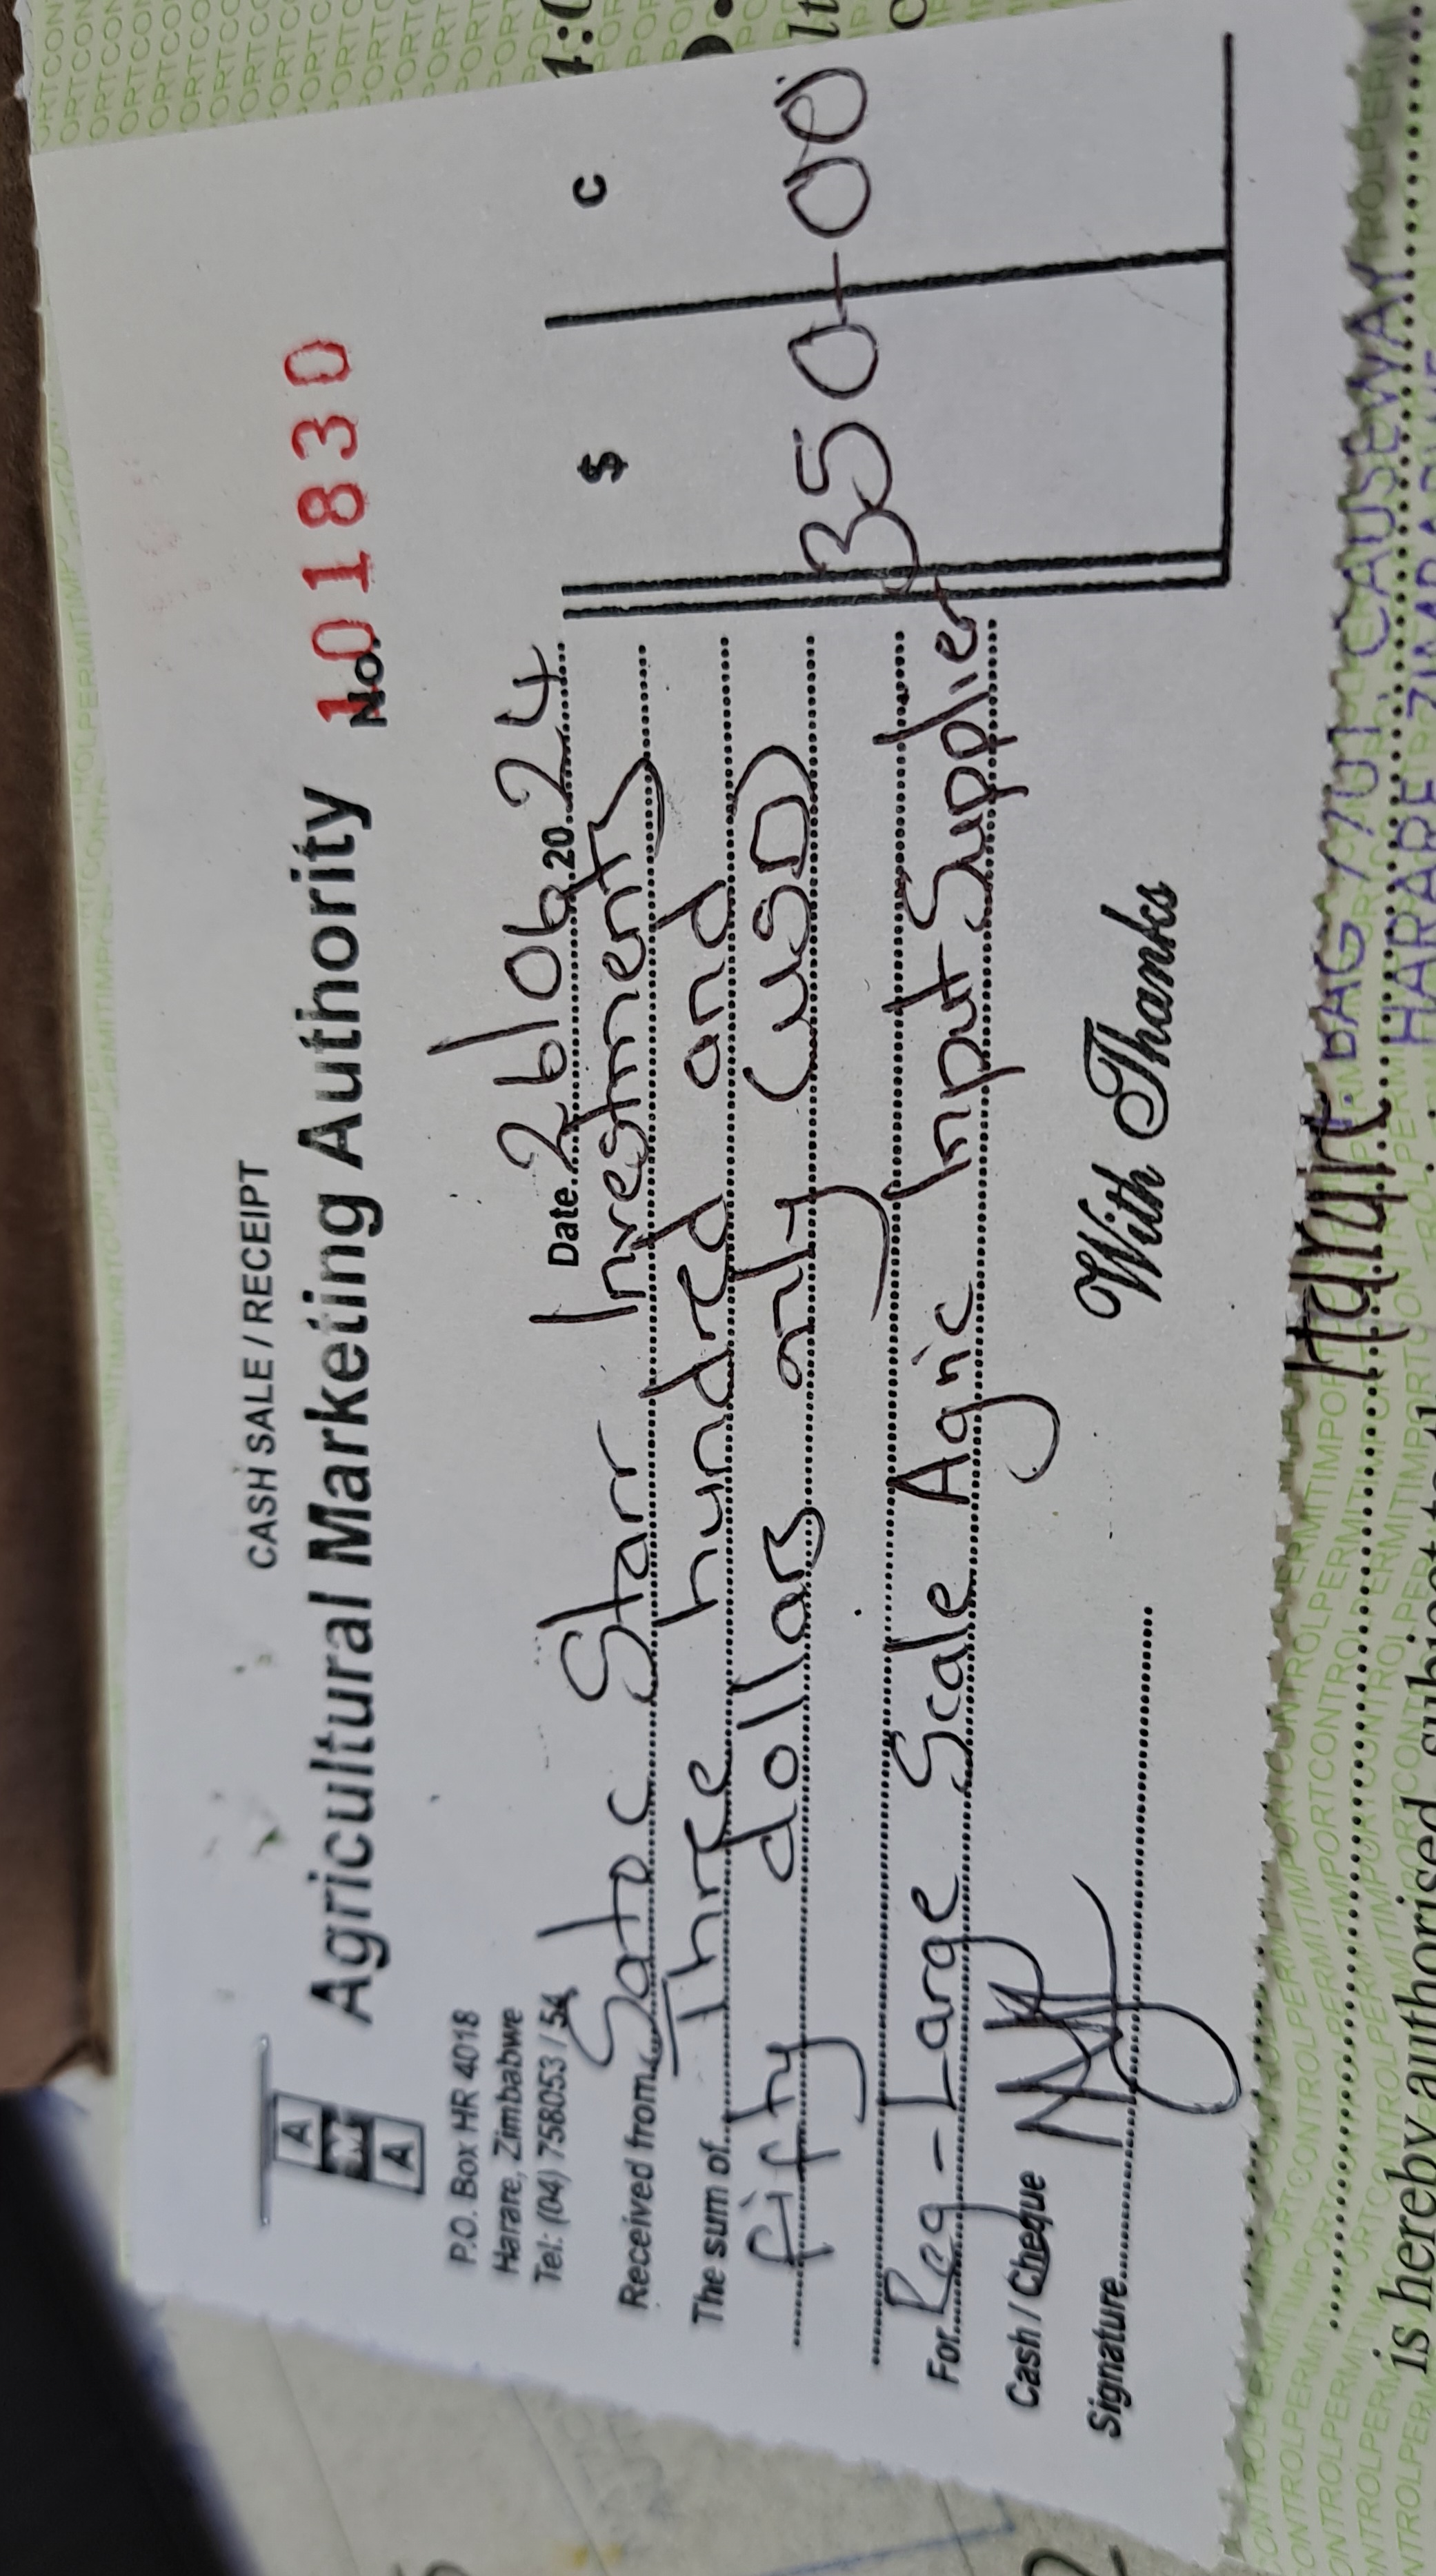 CASH SALE / RECEIPT
A
M
A
Agricultural Marketing Authority
No. 101830
P.O. Box HR 4018
Harare, Zimbabwe
Tel: (04) 758053 / 54
Date 26/06 2024
Received from Satoc Starr Investments
The sum of Three hundred and
fifty dollars only (USD)
$ C
350-00
For Reg - Large Scale Agric Input Supplier
Cash / Cheque
Signature
With Thanks
BAG 7701, CAUSEWAY
HARARE ZIMBABWE
is hereby authorised, subject to